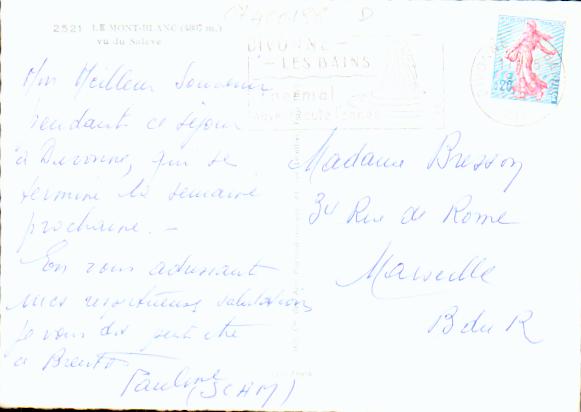 C7400198 D
2521 LE MONT-BLANC (4807 m.)
vu du Salève
DIVONNE-
LES BAINS
0,20
Mon Meilleur Souvenir
Pendant ce séjour
à Divonne, qui se
termine la semaine
prochaine. -
En vous adressant
mes respectueuses salutations
je vous dis peut être
à Bientôt
Pauline (SCHM)
Madame Bresson
34 Rue de Rome
Marseille
B du R